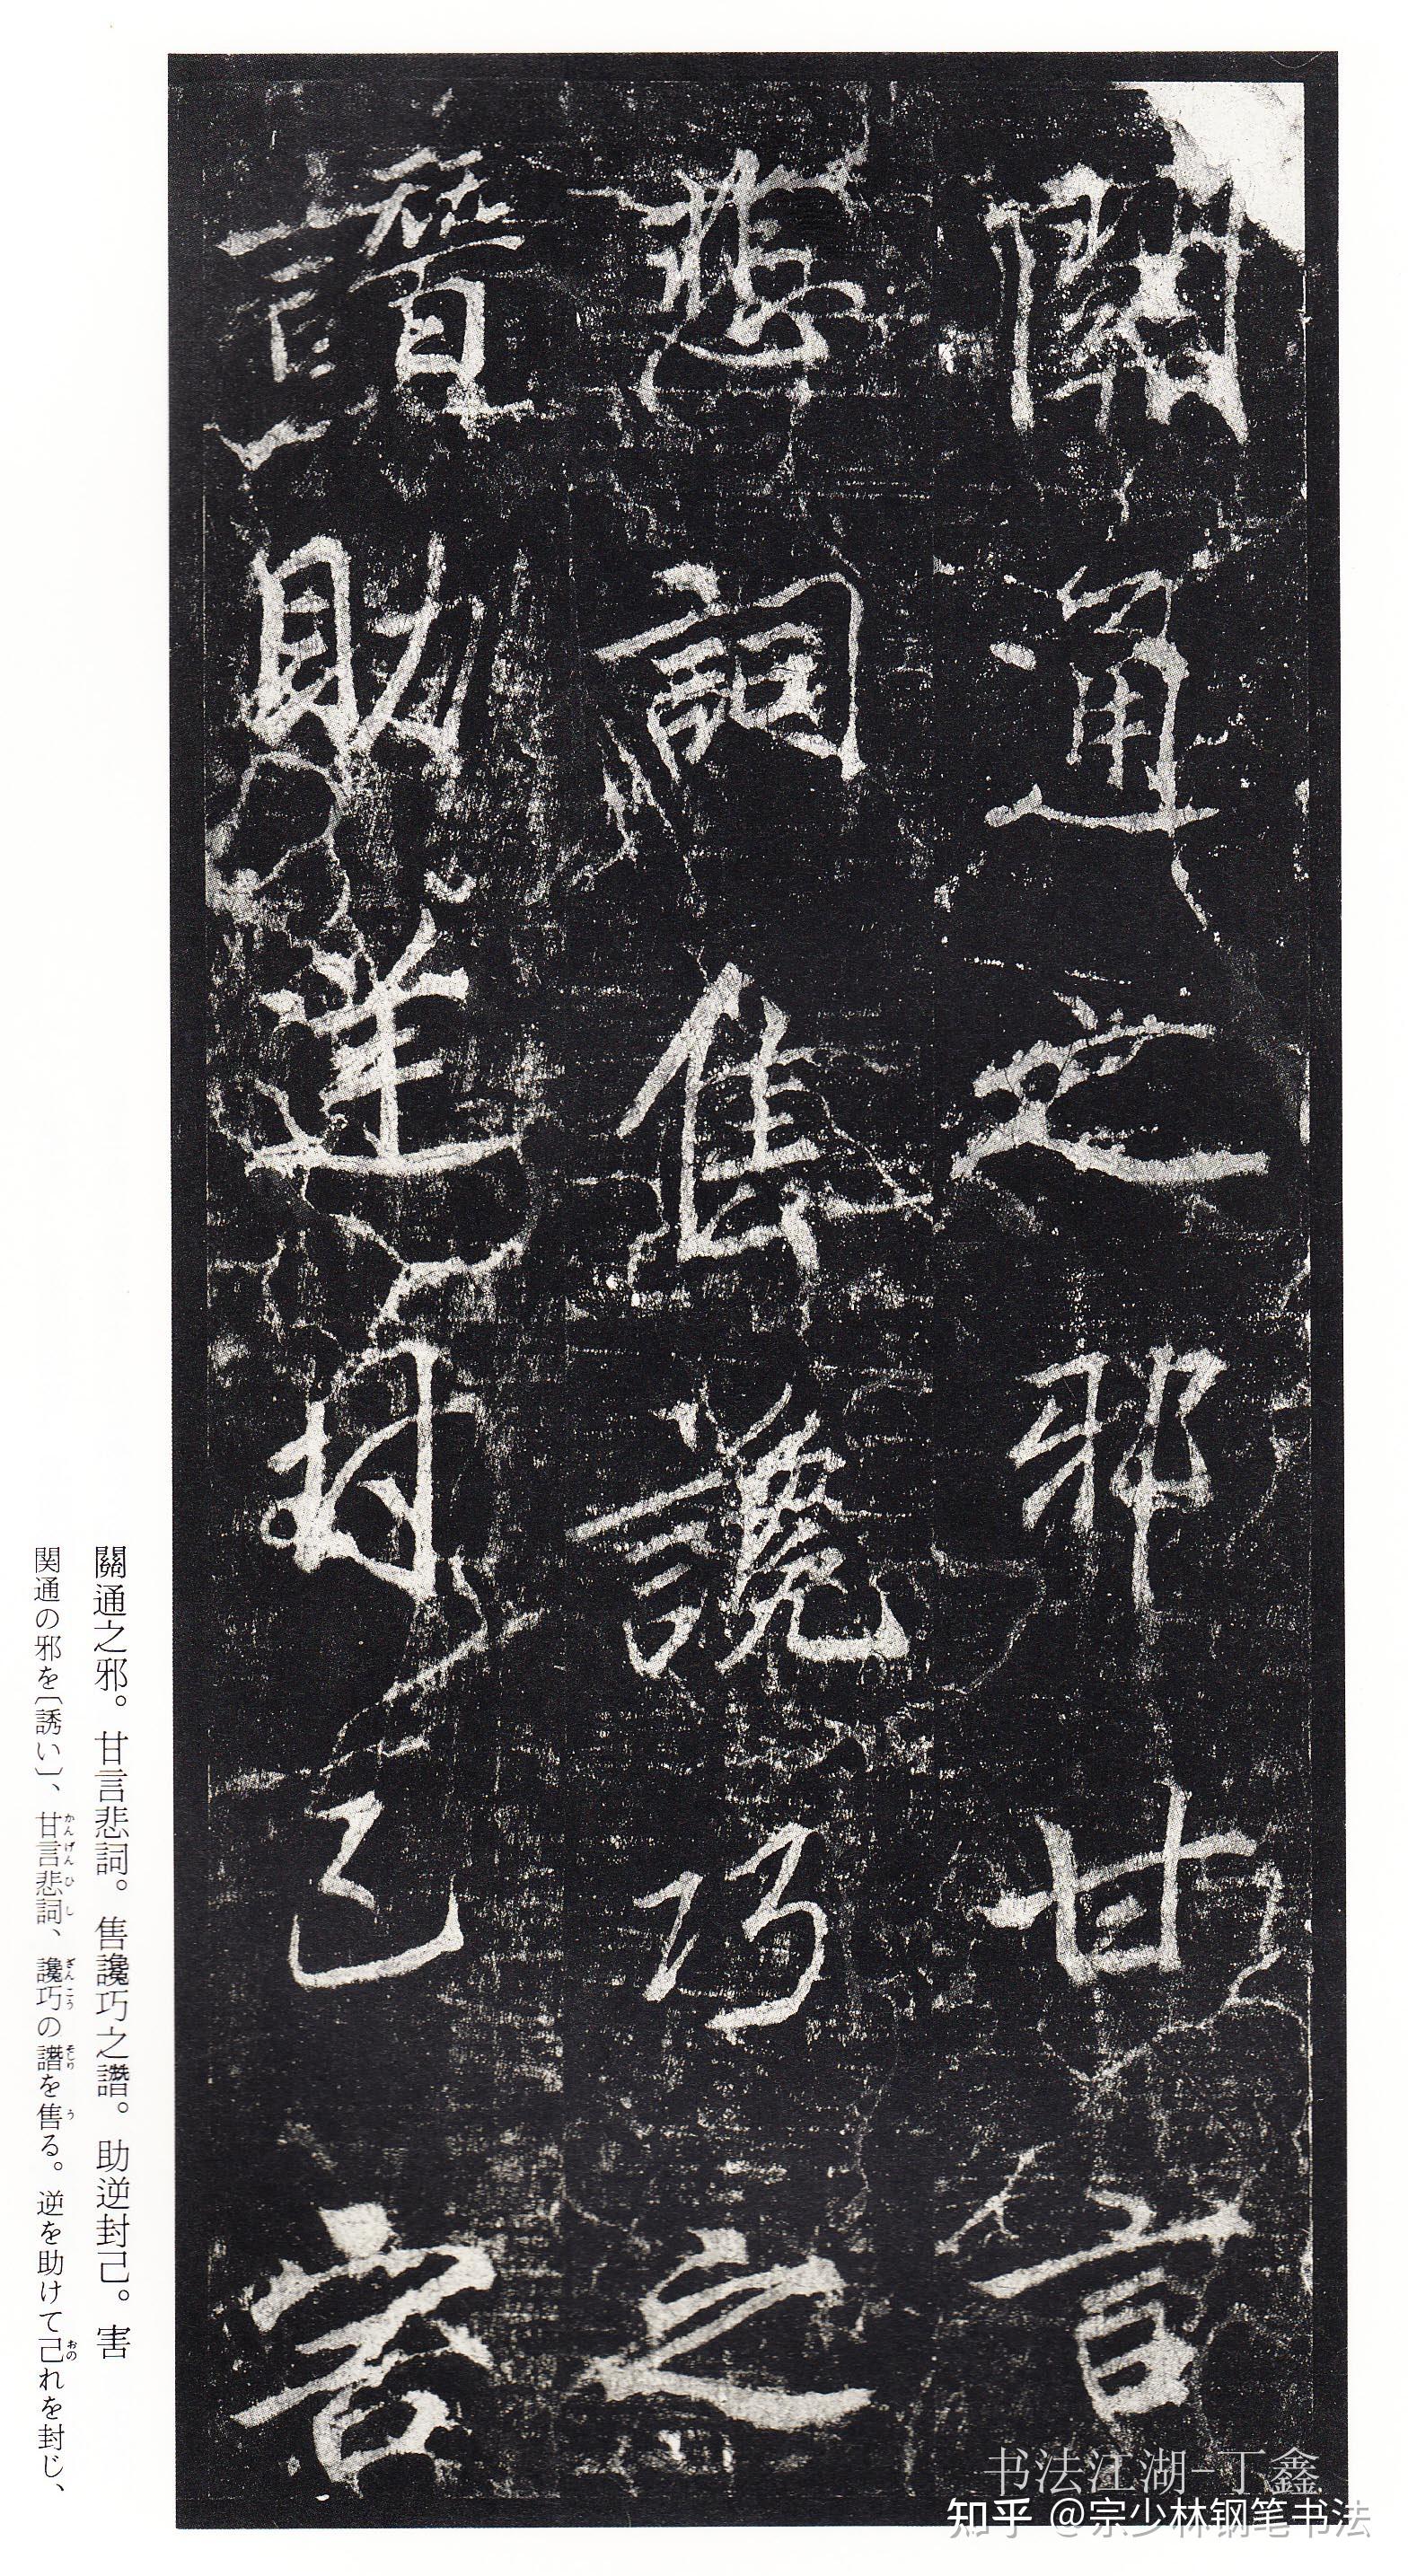 關通之邪甘言
悲詞售讒巧之
譖助逆封己害
關通之邪。甘言悲詞。售讒巧之譖。助逆封己。害
関通の邪を〔誘い〕、甘言悲詞、讒巧の譖を售る。逆を助けて己れを封じ、
かんげんひし
ざんこう
そしり
う
おの
书法江湖-丁鑫
知乎 @宗少林钢笔书法